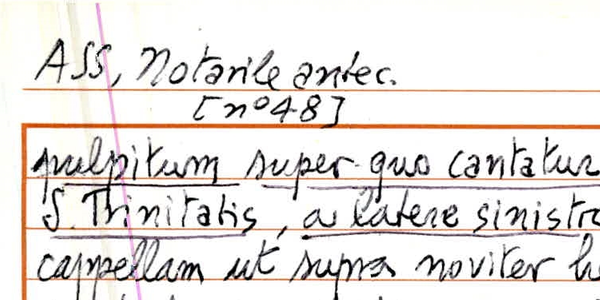 ASS, Notarile antec.
[nº 48]
pulpitum super quo cantatur
S. Trinitatis, a latere sinistro
cappellam ut supra noviter